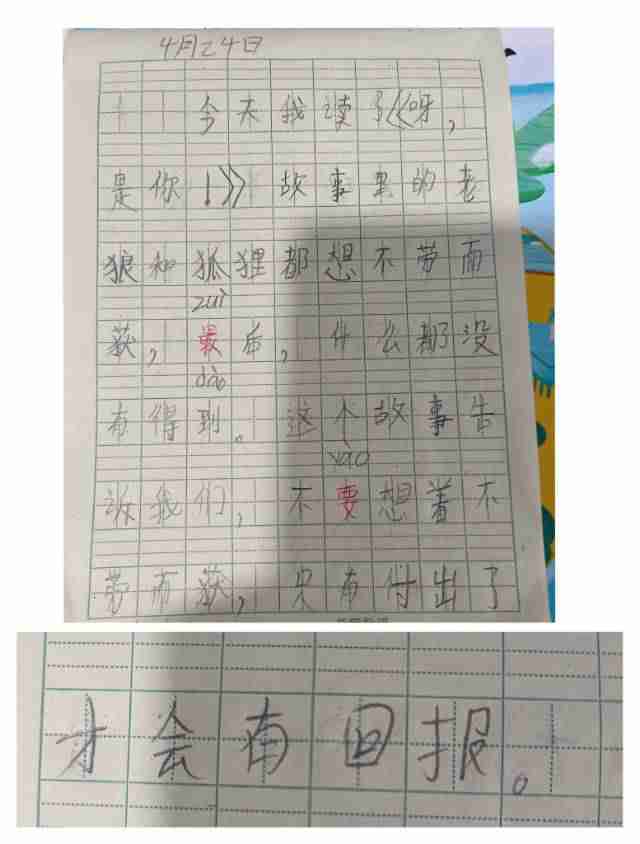 4月24日
今天我读了《呀，
是你！》故事里的老
狼和狐狸都想不劳而
zuì
获，最后，什么都没
dào
有得到。这个故事告
yào
诉我们，不要想着不
劳而获，只有付出了
才会有回报。